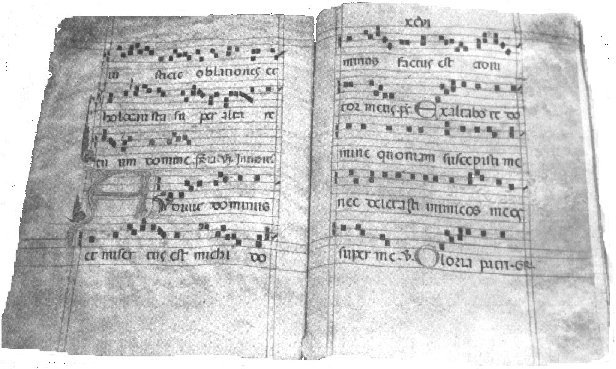 in sticie oblationes et
holocausta su per altare
tu um domine. fr̄a vi Introit⁹
Audiuit dominus
et misertus est michi do
xcvi
minus factus est adiu
tor meus. ps̄. Exaltabo te do
mine quoniam suscepisti me
nec delectasti inimicos meos
super me. v̄. Gloria patri.